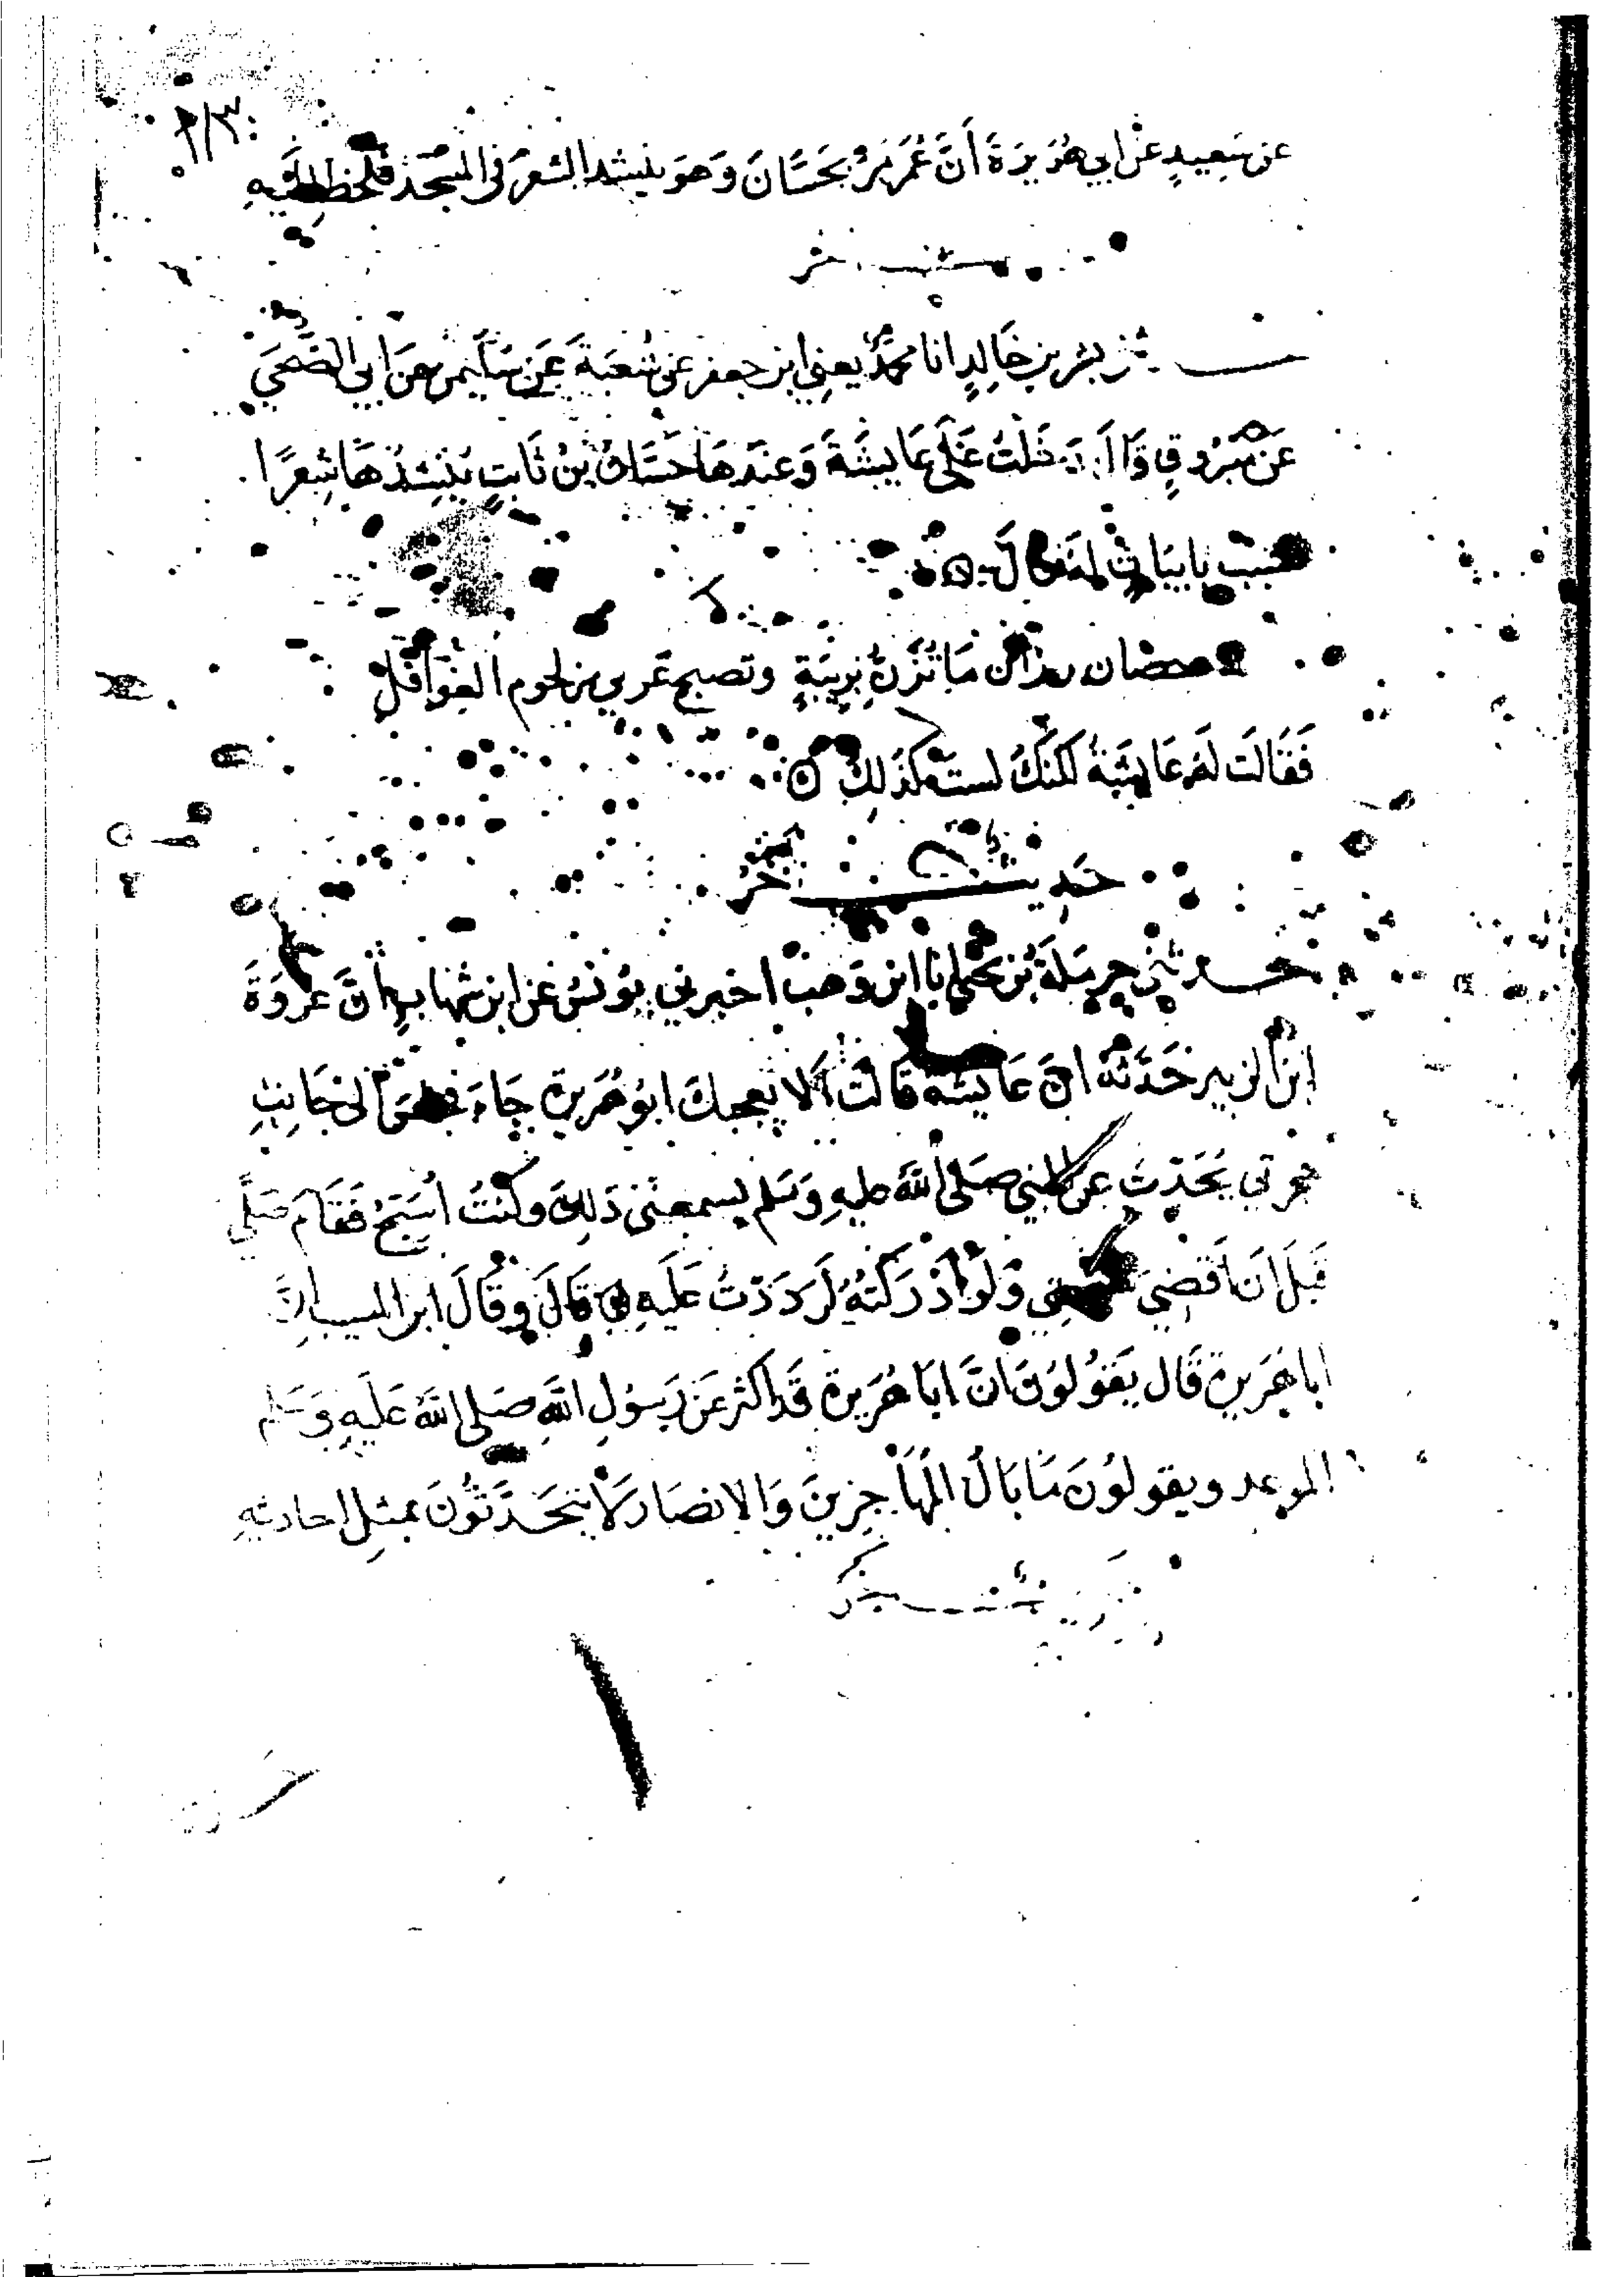 ١٣٠
عن سَعِيدٍ عَنْ ابي هُرَيرَةَ أَنَّ عُمَرَ مَرَّ بِحَسَّانَ وَهوَ ينشد الشعرَ فى المَسْجد فلحظ اليه
بشر بن خَالِدٍ انا محمَّدٌ يعني ابن جعفر عن شُعبَةَ عَن سُلَيمن عن ابي الضُّحَى
عَن مَسْرُوقٍ قَال دَخَلتُ عَلَى عَايشَةَ وَعندَهَا حَسَّانُ بنُ ثَابتٍ يُنشِدُهَا شِعرًا
يشبب بابيَاتٍ لهُ فقال
حصان رزان مَا تُزَنُّ بِرِيبَةٍ وتصبح غرثى من لحوم الغَوَافِلِ
فَقَالَت لَهُ عَايشَةُ لكنَّكَ لستَ كذَلِكَ
حَديث آخرُ
حدثني حرمَلَةُ بن يَحيى انا ابن وَهب اخبرني يُونسُ عن ابن شهابٍ أنَّ عُروَةَ
ابنَ الزبير حَدَّثَهُ انَّ عَايشَةَ قَالَت الا يعجبك ابُو هُرَيرة جَاءَ فجلسَ الى جَانِبِ
حجرتي يُحَدّثُ عن النبي صَلى اللّهُ عليهِ وَسَلم يسمعني ذَلِكَ وكُنتُ أُسَبِّحُ فَقَامَ
قَبلَ أن أَقضِيَ سبحتي وَلَو أَدْرَكتُهُ لَرَدَدْتُ عَلَيهِ قَالَ وقَالَ ابن المسيب انَّ
ابا هُرَيرة قَال يَقُولُونَ انَّ ابَا هُرَيرة قَد اكثر عَن رَسُولِ اللَّهِ صَلى اللَّهُ عَلَيهِ وَسَلم
الموعد ويقولُونَ مَا بَالُ المُهَاجِرِينَ وَالانصَارِ لَا يتَحَدَّثُونَ بمثلِ احاديثهِ